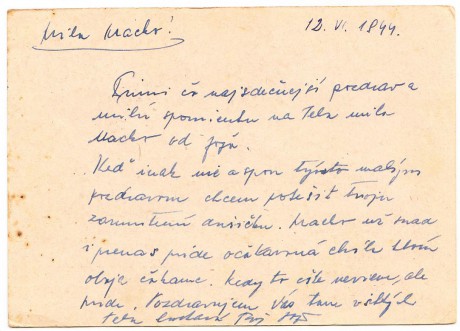 Milá Macko!
12. VI. 1944.
Prijmi čo najsrdečnejší pozdrav a
milú spomienku na Teba milá
Macko od
Keď inak nie aspoň týmto malým
pozdravom chcem potešiť Tvoju
zarmútenú dušičku. Macko už snad
i pre nás príde očakávaná chvíľa ktorú
obaja čakáme. Kedy to ešte neviem, ale
príde. Pozdravujem Vás tam všetkých
Teba Tvoj